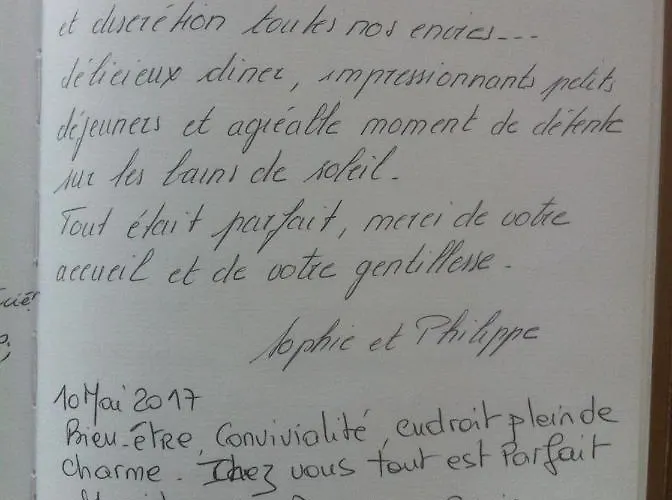 et discrétion toutes nos envies...
délicieux diner, impressionnants petits
déjeuners et agréable moment de détente
sur les bains de soleil.
Tout était parfait, merci de votre
accueil et de votre gentillesse.
Sophie et Philippe
10 Mai 2017
Bien-être, Convivialité, endroit plein de
charme. Chez vous tout est Parfait